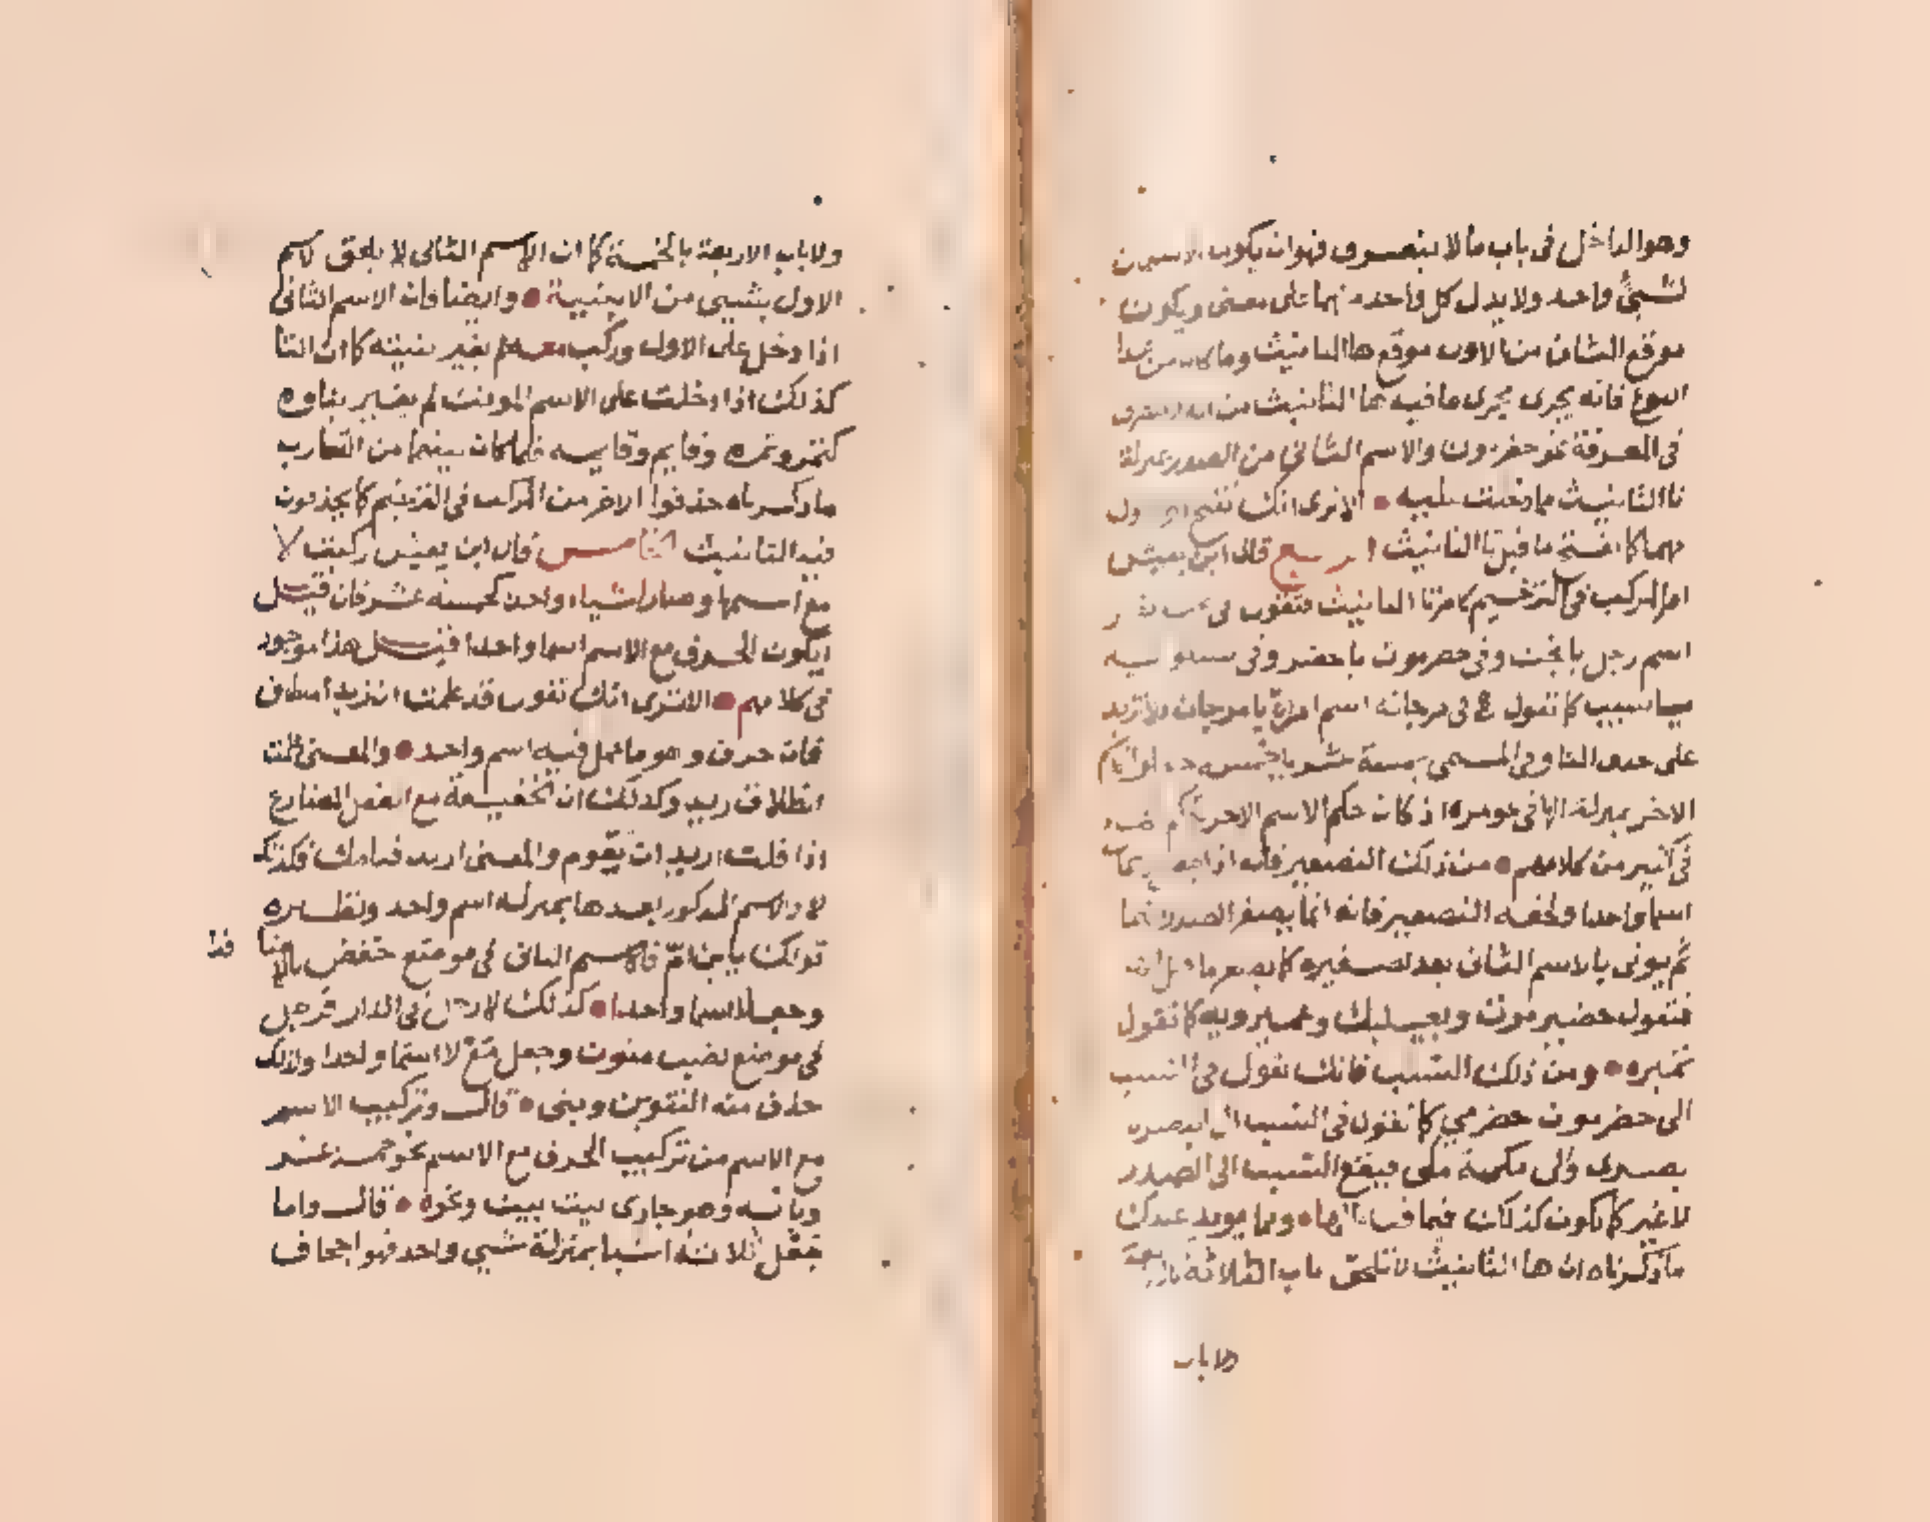 وهو الداخل في باب ما لا ينصرف فهو ان يكون الاسمان
لشيئ واحد ولا يدل كل واحد منهما على معنى ويكون
موقع الثاني من الاول موقع ها التانيث وما كان من هذا
النوع فانه يجرى مجرى ما فيه ها التانيث من انه لا ينصرف
في المعرفة نحو حضرموت والاسم الثاني من الصدر بمنزلة
تا التانيث مما دخلت عليه الا ترى انك تفتح اخر الاول
منهما كما تفتح ما قبل تا التانيث الرابع قال ابن يعيش
امر المركب في الترخيم كامر تا التانيث فتقول في بخت نصر
اسم رجل يا بخت وفي حضرموت يا حضر وفي سيبويه
يا سيب كما تقول في مرجانه اسم امراة يا مرجان ولا تزيد
على حذف التا وفي المسمى بخمسة عشر يا خمسه جعلوا
الاخر بمنزلة الها في نحو مره اذ كان حكم الاسم الاخر
في كثير من كلامهم من ذلك التصغير فانه اذا
اسما واحدا ولحقه التصغير فانه انما يصغر الصدر منهما
ثم يوتى بالاسم الثاني بعد تصغيره كما يصغر ما قبل
فتقول حضيرموت وبعيلبك وعميرويه كما تقول
تميره ومن ذلك النسب فانك تقول في النسب
الى حضرموت حضرمي كما تقول في النسب الى البصره
بصرى والى مكة مكى فيقع النسب الى الصدر
لا غير كما يكون كذلك فيما فيه الها ومما يويد عندك
ما ذكرناه ان ها التانيث لا تلحق باب الثلاثة بالاربعة
ولا باب
ولا باب الاربعة بالخمسة كما ان الاسم الثاني لا يلحق الاسم
الاول بشيى من الابنية وايضا فان الاسم الثاني
اذا دخل على الاول وركب معه لم يغير بنيته كما ان التا
كذلك اذا دخلت على الاسم المونث لم يغير بناوه
كتمر وتمره وقايم وقايمه فلما كان بينهما من التقارب
ما ذكرناه حذفوا الاخر من المركب في الترخيم كما يحذفون
فيه التانيث الخامس قال ابن يعيش ركبت لا
مع اسمها وصارا شياء واحد كخمسه عشر فان قيل
ايكون الحرف مع الاسم اسما واحدا قيل هذا موجود
في كلامهم الا ترى انك تقول قد علمت ان زيدا منطلق
فان حرف وهو ما عمل فيه اسم واحد والمعنى علمت
انطلاق زيد وكذلك ان الخفيفة مع الفعل المضارع
اذا قلت اريد ان يقوم والمعنى اريد قيامك فكذلك
لا والاسم المذكور بعدها بمنزله اسم واحد ونظيره
قولك يا بن ام فالاسم الثاني في موضع خفض بالاضافة
وجعلا اسما واحدا كذلك لا رجل في الدار فرجل
في موضع نصب منون وجعل مع لا اسما واحدا ولذلك
حذف منه التنوين وبنى قال وتركيب الاسم
مع الاسم من تركيب الحرف مع الاسم نحو خمسة عشر
وبابه وهو جارى بيت بيت ونحوه قال واما
جعل ثلاثه اشيا بمنزلة شيي واحد فهو اجحاف